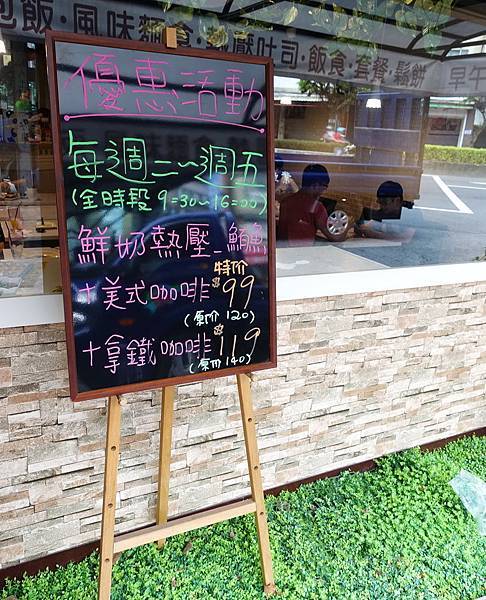 包飯·風味麵食·熱壓吐司·飯食·套餐·鬆餅
早午
優惠活動
每週二~週五
(全時段 9:30~16:00)
鮮奶熱壓_鮪魚
特价
+美式咖啡 $99
(原价 120)
+拿鐵咖啡 $119
(原价 140)